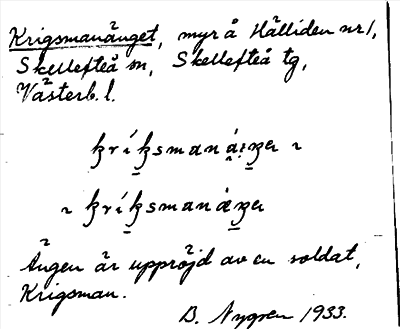 Krigsmanänget, myr å Hälliden nr 1,
Skellefteå sn, Skellefteå tg,
Västerb. l.
Ängen är uppröjd av en soldat,
Krigsman.
B. Nygren 1933.